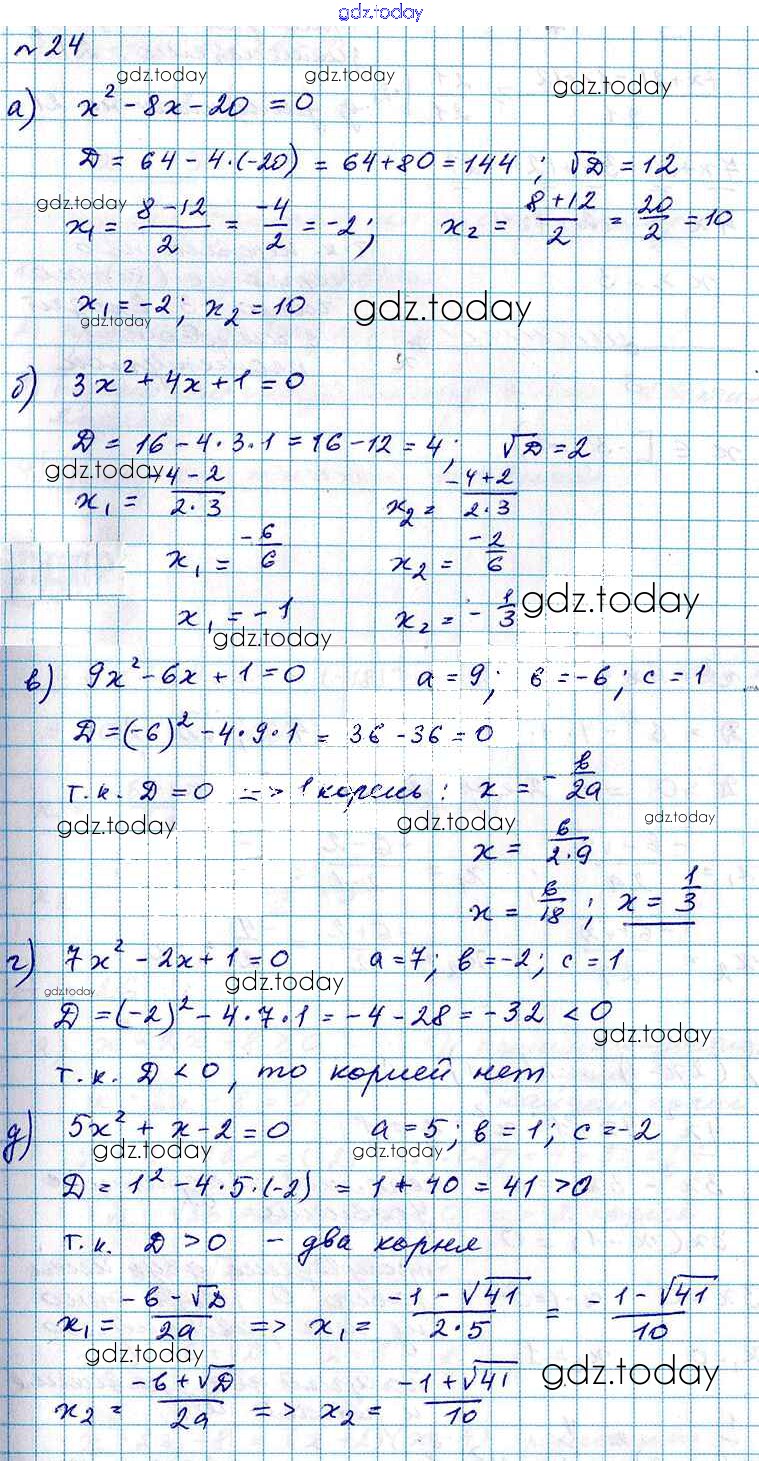 gdz.today
№ 24
gdz.today gdz.today gdz.today
а) x² - 8x - 20 = 0
D = 64 - 4·(-20) = 64 + 80 = 144 ; √D = 12
gdz.today gdz.today
x₁ = (8 - 12)/2 = -4/2 = -2; x₂ = (8 + 12)/2 = 20/2 = 10
x₁ = -2; x₂ = 10 gdz.today
gdz.today
б) 3x² + 4x + 1 = 0
D = 16 - 4·3·1 = 16 - 12 = 4; √D = 2
gdz.today
x₁ = (-4 - 2)/(2·3) x₂ = (-4 + 2)/(2·3)
x₁ = -6/6 x₂ = -2/6
x₁ = -1 x₂ = -1/3 gdz.today
gdz.today
в) 9x² - 6x + 1 = 0 a = 9; в = -6; c = 1
D = (-6)² - 4·9·1 = 36 - 36 = 0
т.к. D = 0 => 1 корень: x = -в/2a
gdz.today gdz.today gdz.today
x = 6/(2·9)
x = 6/18 ; x = 1/3
г) 7x² - 2x + 1 = 0 a = 7; в = -2; c = 1
gdz.today gdz.today
D = (-2)² - 4·7·1 = -4 - 28 = -32 < 0
gdz.today
т.к. D < 0, то корней нет
д) 5x² + x - 2 = 0 a = 5; в = 1; c = -2
gdz.today gdz.today
D = 1² - 4·5·(-2) = 1 + 40 = 41 > 0
т.к. D > 0 - два корня
x₁ = (-в - √D)/2a => x₁ = (-1 - √41)/(2·5) = (-1 - √41)/10
gdz.today gdz.today
x₂ = (-в + √D)/2a => x₂ = (-1 + √41)/10